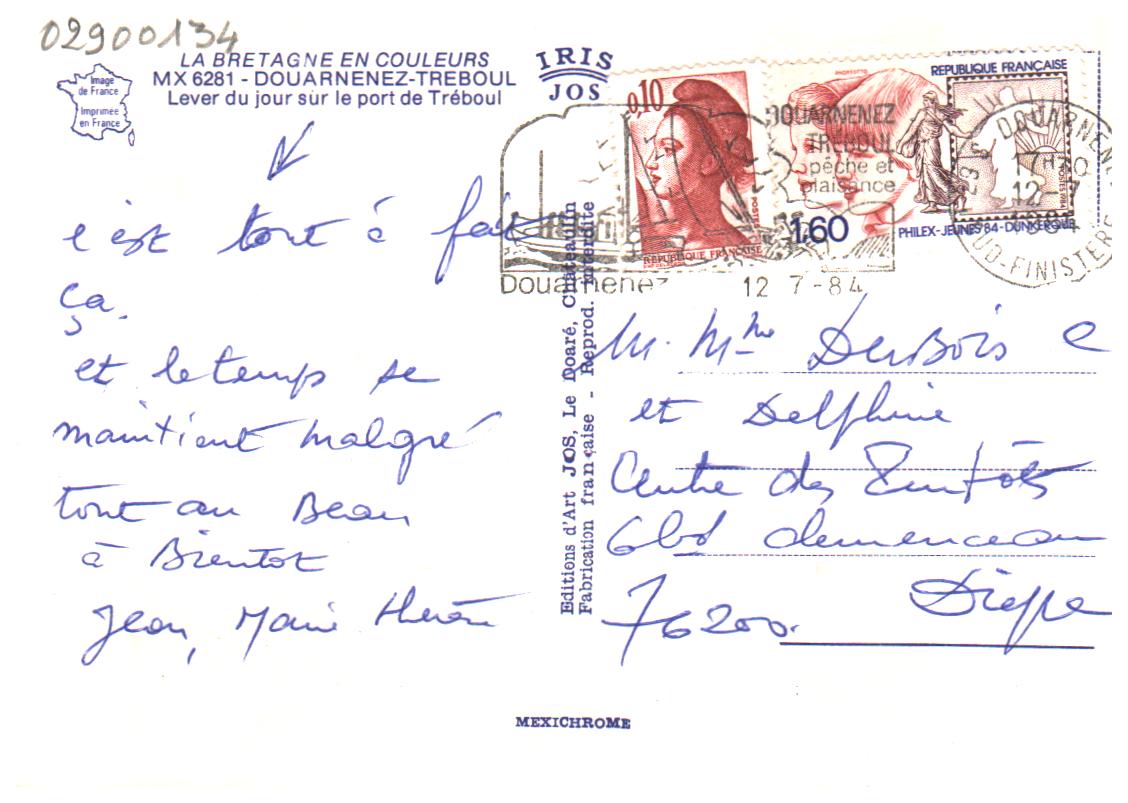 02900134
LA BRETAGNE EN COULEURS
MX 6281 - DOUARNENEZ-TREBOUL
Lever du jour sur le port de Tréboul
Image
de France
Imprimée
en France
IRIS
JOS
0,10
POSTES
REPUBLIQUE FRANÇAISE
REPUBLIQUE FRANÇAISE
1,60
PHILEX-JEUNES 84-DUNKERQUE
DOUARNENEZ
TREBOUL
pêche et
plaisance
Douarnenez
12 7-84
DOUARNENEZ
17H30
12-7
SUD-FINISTERE
c'est tout à fait
ça.
et le temps se
maintient malgré
tout au Beau
à Bientot
Jean, Marie Thérèse
Editions d'Art JOS, Le Doaré, Châteaulin
Fabrication française - Reprod. interdite
M. Mme DuBois C
et Delphine
Centre des Impôts
6 bd clemenceau
76200. Dieppe
MEXICHROME